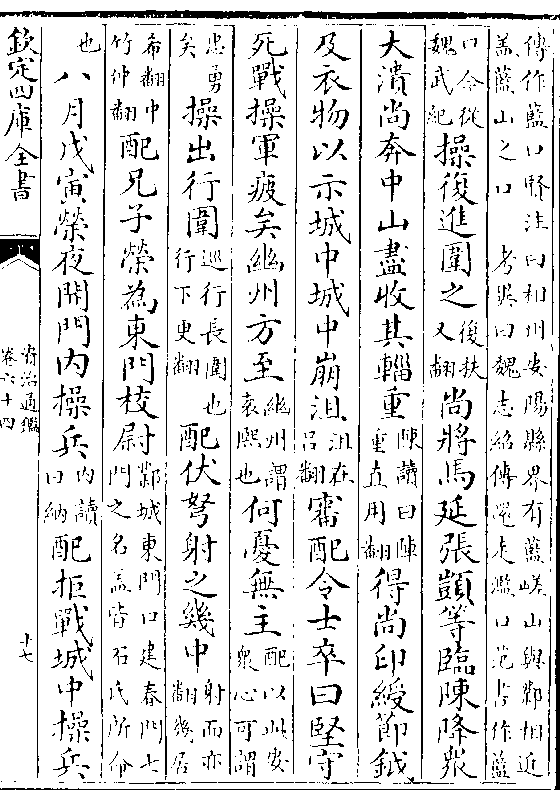 傳作藍口賢注曰相州安陽縣界有藍嵯山與鄴相近
蓋藍山之口　考異曰魏志紹傳還走濫口范書作藍
口今從
魏武紀
操復進圍之
復扶
又翻
尚將馬延張顗等臨陳降衆
大潰尚奔中山盡收其輜重
陳讀曰陣
重直用翻
得尚印綬節鉞
及衣物以示城中城中崩沮
沮在
吕翻
審配令士卒曰堅守
死戰操軍疲矣幽州方至
幽州謂
袁熙也
何憂無主
配以此安
衆心可謂
忠勇
矣
操出行圍
巡行長圍也
行下更翻
配伏弩射之幾中
射而亦
翻幾居
希翻中
竹仲翻
配兄子榮為東門校尉
鄴城東門曰建春門七
門之名蓋皆石氏所命
也
八月戊寅榮夜開門内操兵
内讀
曰納
配拒戰城中操兵
欽定四庫全書
資治通鑑
卷六十四
十七